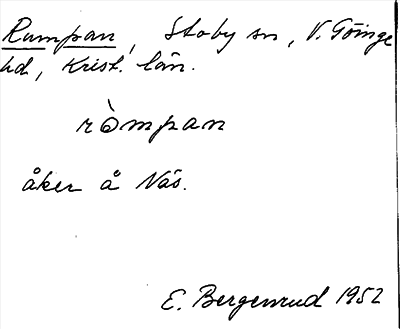 Rumpan, Stoby sn, V. Göinge
hd, Krist. län.
ròmpan
åker å Näs.
E. Bergenrud 1952